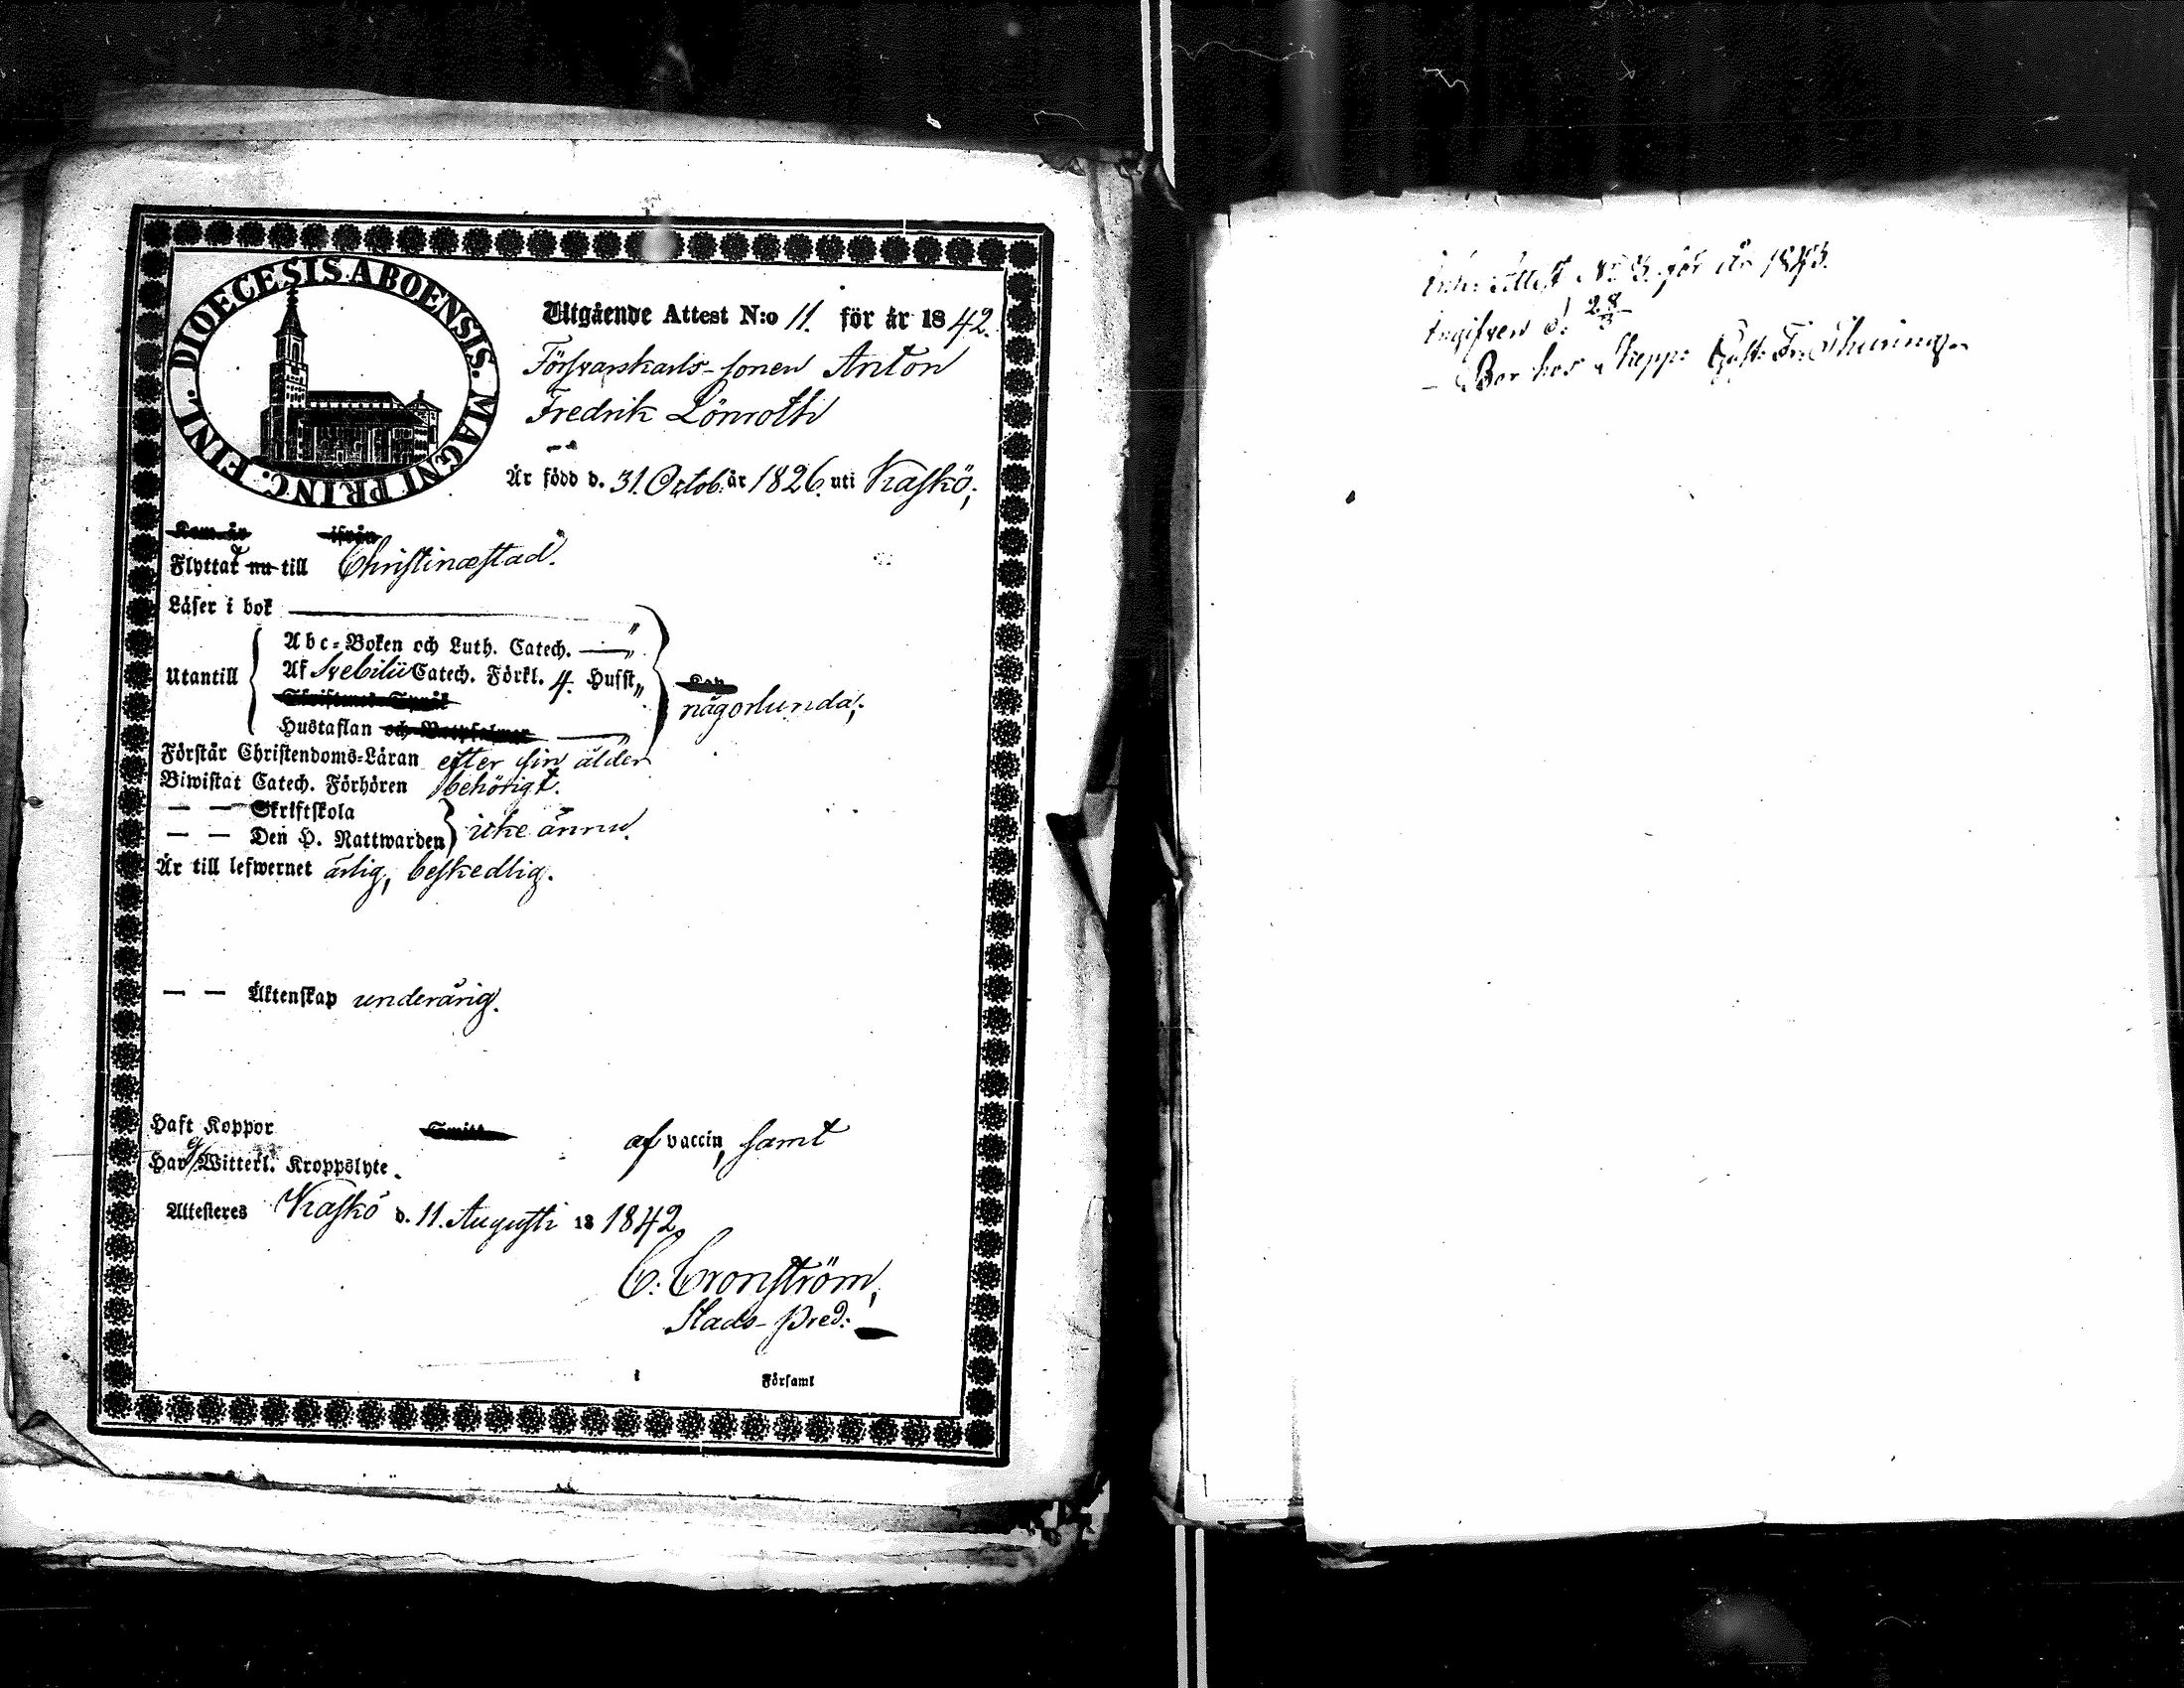 DIOECESIS ABOENSIS. MAGNI PRINC. FINL.
Utgående Attest N:o 11. för år 1842.
Försvarskarls-sonen Anton
Fredrik Lönroth
Är född d. 31. Octob. år 1826. uti Kaskö;
Kom år ifrån
Flyttat nu till Christinæstad.
Läser i bok
Abc-Boken och Luth. Catech.
Utantill
Af Svebilii Catech. Förkl. 4. Hufst
någorlunda;
Hustaflan och
Förstår Christendoms-Läran efter sin ålder
Biwistat Catech. Förhören behörigt.
— — Skriftskola
— — Den H. Nattwarden icke ännu.
Är till lefwernet ärlig, beskedlig.
— — Äktenskap underårig.
Haft Koppor af vaccin, samt
Har ej Witterl. Kroppslyte.
Attesteres Kaskö d. 11. Augusti 18 1842.
C. Cronström,
Stads-Pred:
i Församl
Attest N:o för år 1843.
Ingifven d. 28/3
- Bor hos Skepp: